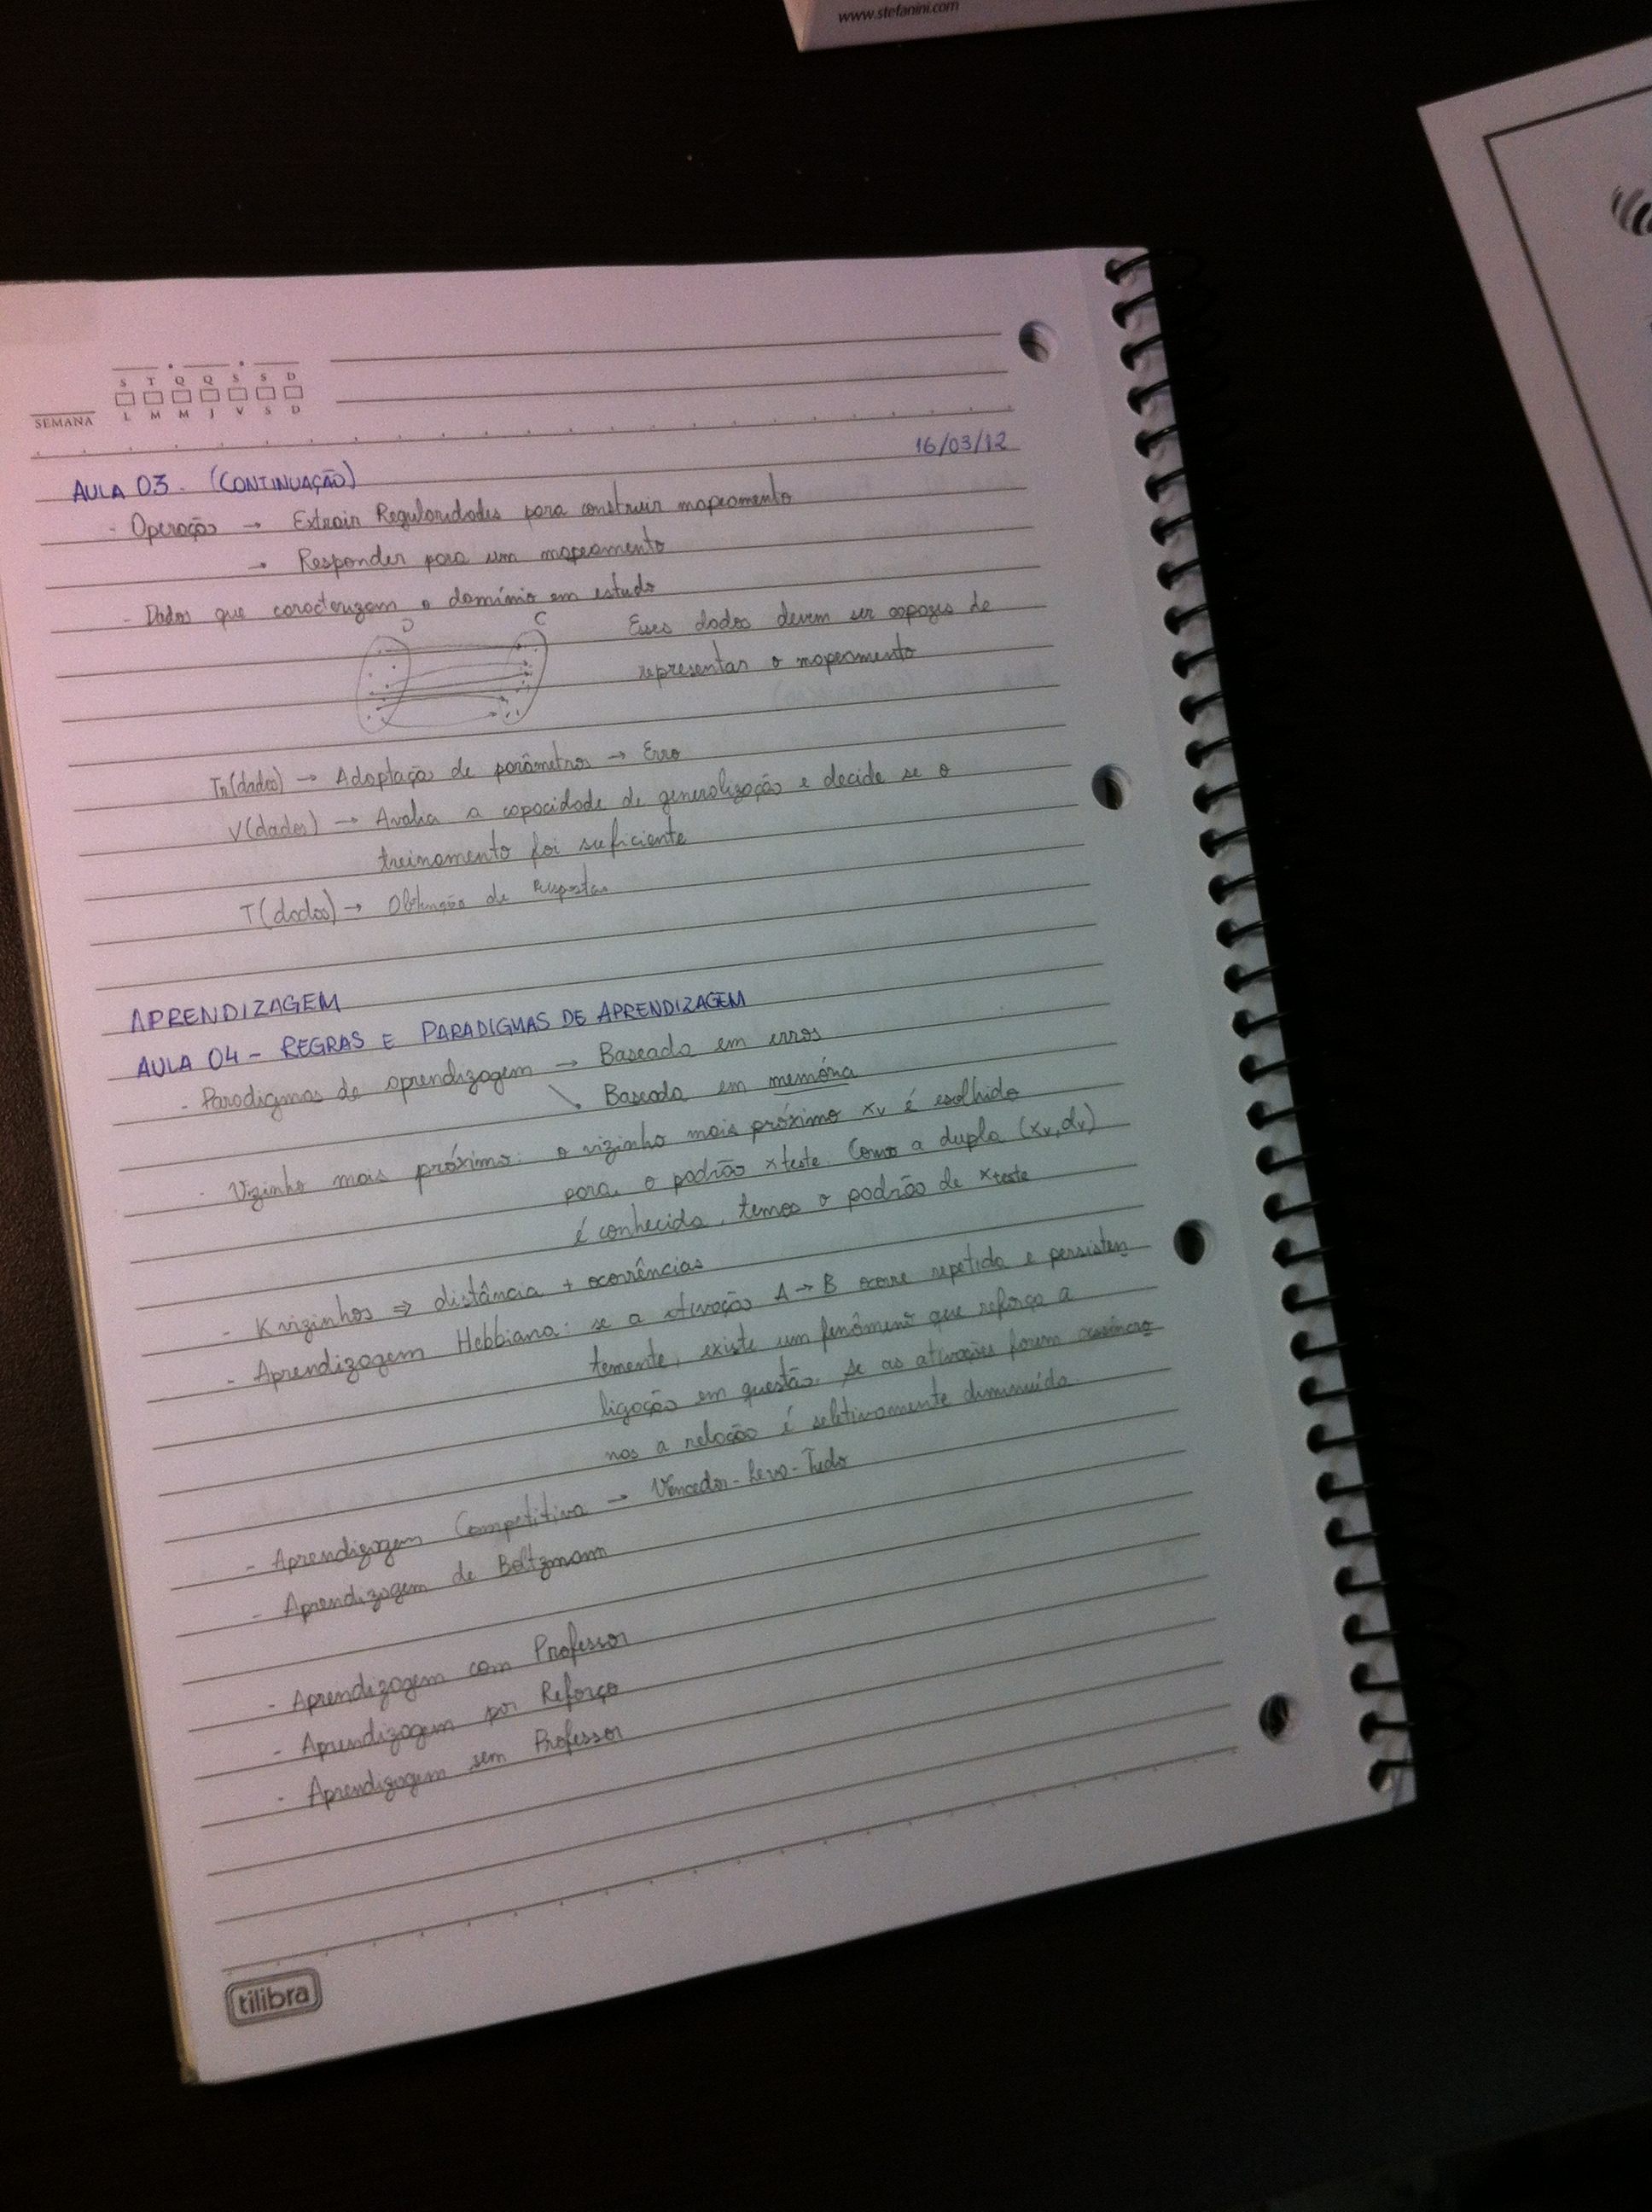 www.stefanini.com
S T Q Q S S D
SEMANA L M M J V S D
16/03/12
AULA 03. (CONTINUAÇÃO)
- Operação → Extrair Regularidades para construir mapeamento
→ Responder para um mapeamento
- Dados que caracterizam o domínio em estudo
D C Esses dados devem ser capazes de
representar o mapeamento
Tr(dados) → Adaptação de parâmetros → Erro
V(dados) → Avalia a capacidade de generalização e decide se o
treinamento foi suficiente
T(dados) → Obtenção de respostas
APRENDIZAGEM
AULA 04 - REGRAS E PARADIGMAS DE APRENDIZAGEM
- Paradigmas de aprendizagem → Baseada em erros
Baseada em memória
- Vizinho mais próximo: o vizinho mais próximo xv é escolhido
para o padrão xteste. Como a dupla (xv, dv)
é conhecida, temos o padrão de xteste
- K vizinhos ⇒ distância + ocorrências
- Aprendizagem Hebbiana: se a ativação A → B ocorre repetida e persisten
temente, existe um fenômeno que reforça a
ligação em questão. Se as ativações forem assíncro
nas a relação é seletivamente diminuída.
- Aprendizagem Competitiva → Vencedor-Leva-Tudo
- Aprendizagem de Boltzmann
- Aprendizagem com Professor
- Aprendizagem por Reforço
- Aprendizagem sem Professor
tilibra